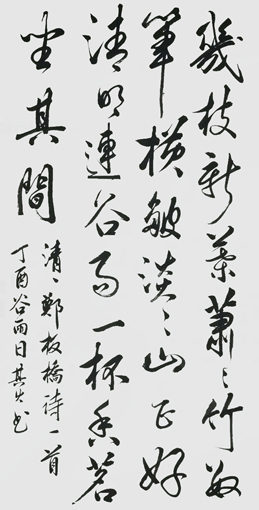 幾枝新葉蕭〻竹數
筆橫皴淡〻山正好
清明連谷雨一杯香茗
坐其間
清、鄭板橋詩一首
丁酉谷雨日其书